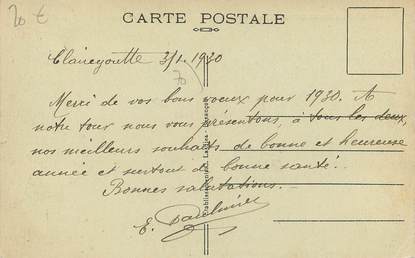 20 €
CARTE POSTALE
Clairegoutte 3/1. 1930
Merci de vos bons voeux pour 1930. A
notre tour nous vous présentons, à tous les deux,
nos meilleurs souhaits de bonne et heureuse
année et surtout de bonne santé.
Bonnes salutations.
E.